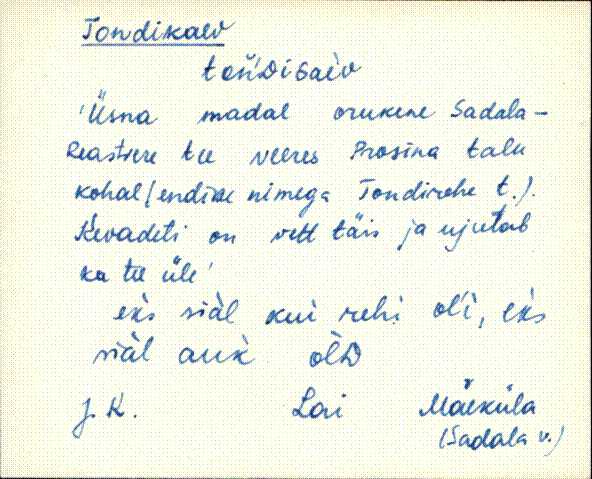 Tondikaev
tońDiGaèv
'Üsna madal orukene Sadala-
Reastvere tee veeres Prosina talu
kohal (endise nimega Tondirehe t.).
Kevadeti on vett täis ja ujutab
ka tee üle'
eks siàl kui rehi oĺi, eks
siàl auk òlD
J. K. Lai Mäeküla
(Sadala v.)